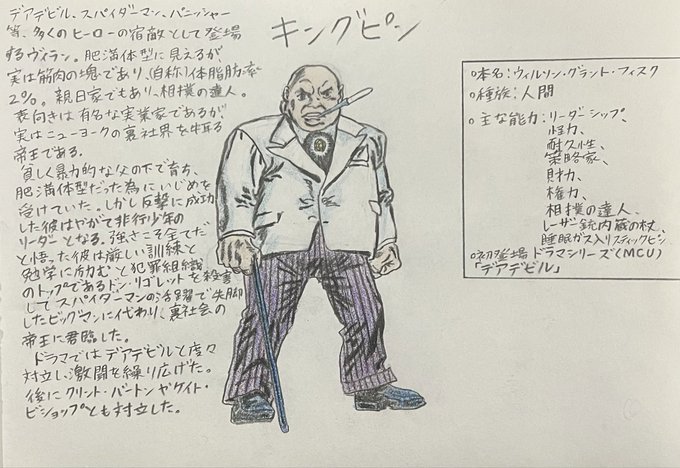 キングピン
デアデビル、スパイダーマン、パニッシャー
等、多くのヒーローの宿敵として登場
するヴィラン。肥満体型に見えるが
実は筋肉の塊であり、(自称)体脂肪率
2%。親日家でもあり、相撲の達人。
表向きは有名な実業家であるが、
実はニューヨークの裏社界を牛耳る
帝王である。
貧しく暴力的な父の下で育ち、
肥満体型だった為にいじめを
受けていた。しかし反撃に成功
した彼はやがて非行少年の
リーダーとなる。強さこそ全てだ
と悟った彼は厳しい訓練と
勉学に励むと犯罪組織
のトップであるドン・リゴレットを殺害
してスパイダーマンの活躍で失脚
したビッグマンに代わり、裏社会の
帝王に君臨した。
ドラマではデアデビルと度々
対立し、激闘を繰り広げた。
後にクリント・バートンやケイト・
ビショップとも対立した。
○本名:ウィルソン・グラント・フィスク
○種族:人間
○主な能力:リーダーシップ、
怪力、
耐久性、
策略家、
財力、
権力、
相撲の達人、
レーザー銃内蔵の杖、
睡眠ガス入りスティックピン
○初登場ドラマシリーズ(MCU)
「デアデビル」